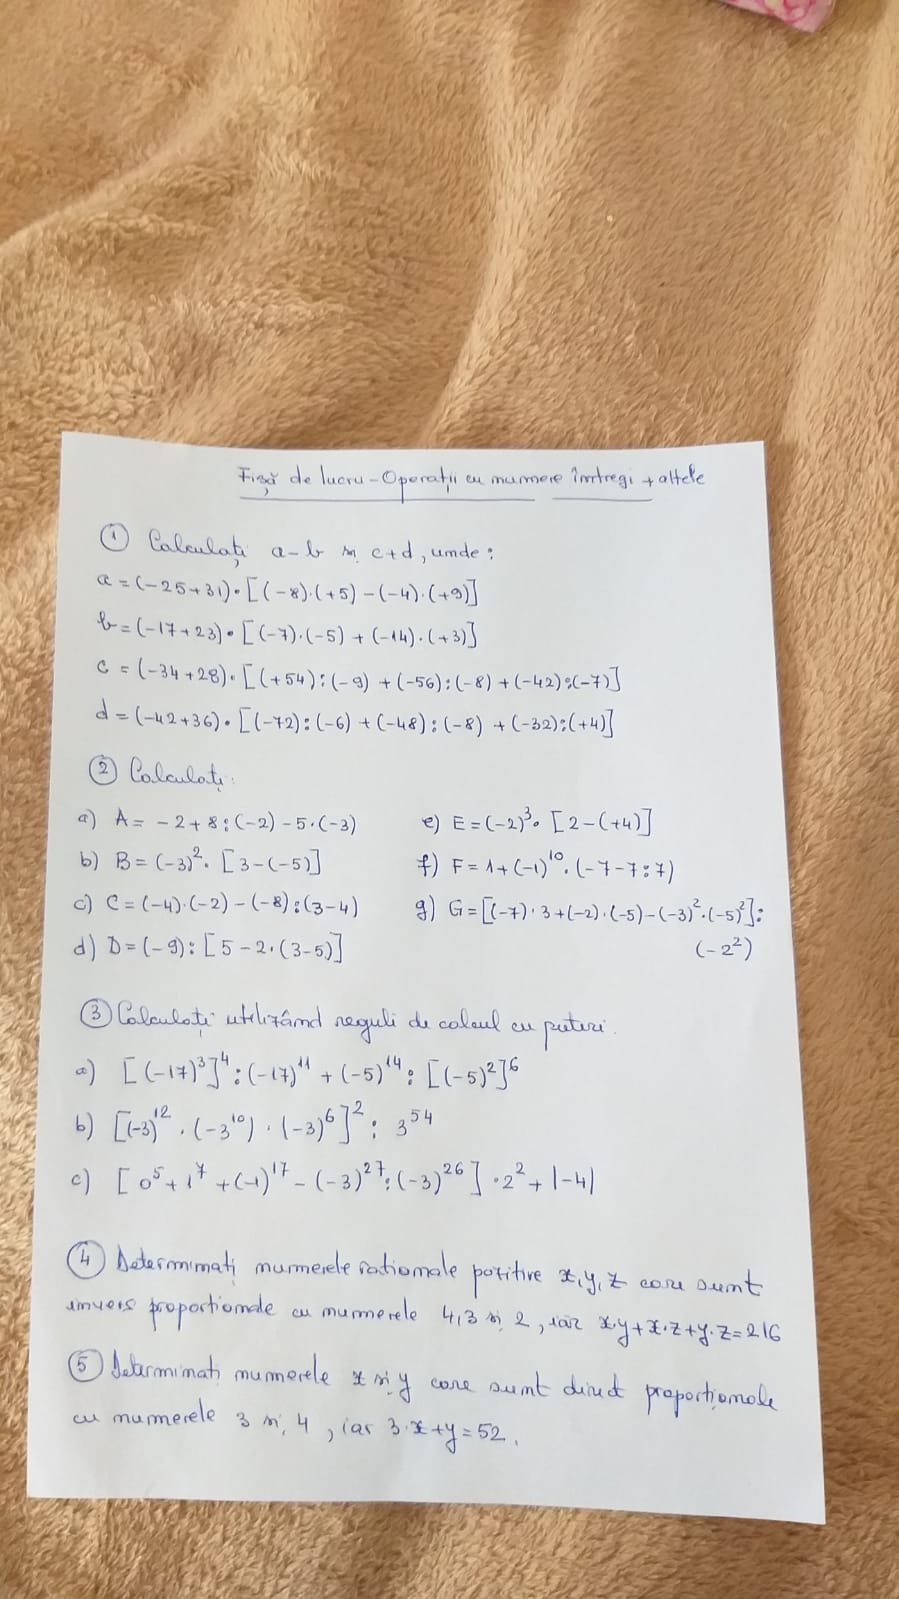 Fișă de lucru - Operații cu numere întregi + altele
① Calculați a-b și c+d, unde:
a = (-25+31)·[(-8)·(+5)-(-4)·(+9)]
b = (-17+23)·[(-7)·(-5)+(-14)·(+3)]
c = (-34+28)·[(+54):(-9)+(-56):(-8)+(-42):(-7)]
d = (-42+36)·[(-72):(-6)+(-48):(-8)+(-32):(+4)]
② Calculați:
a) A = -2+8:(-2)-5·(-3)
b) B = (-3)²·[3-(-5)]
c) C = (-4)·(-2)-(-8):(3-4)
d) D = (-9):[5-2·(3-5)]
e) E = (-2)³·[2-(+4)]
f) F = 1+(-1)¹⁰·(-7-7:7)
g) G = [(-7)·3+(-2)·(-5)-(-3)²·(-5²)]:
(-2²)
③ Calculați utilizând reguli de calcul cu puteri.
a) [(-17)³]⁴:(-17)¹¹+(-5)¹⁴:[(-5)²]⁶
b) [(-3)¹²·(-3¹⁰)·(-3)⁶]²:3⁵⁴
c) [0⁵+1⁷+(-1)¹⁷-(-3)²⁷:(-3)²⁶]·2²+|-4|
④ Determinați numerele raționale pozitive x, y, z care sunt
invers proporționale cu numerele 4, 3 și 2, iar x·y+x·z+y·z=216
⑤ Determinați numerele x și y care sunt direct proporționale
cu numerele 3 și 4, iar 3·x+y=52.